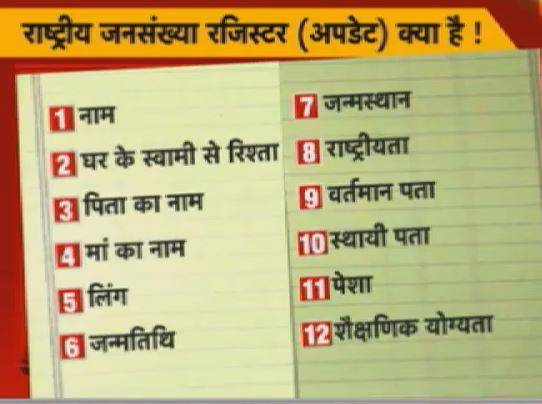 राष्ट्रीय जनसंख्या रजिस्टर (अपडेट) क्या है !
1 नाम
2 घर के स्वामी से रिश्ता
3 पिता का नाम
4 मां का नाम
5 लिंग
6 जन्मतिथि
7 जन्मस्थान
8 राष्ट्रीयता
9 वर्तमान पता
10 स्थायी पता
11 पेशा
12 शैक्षणिक योग्यता